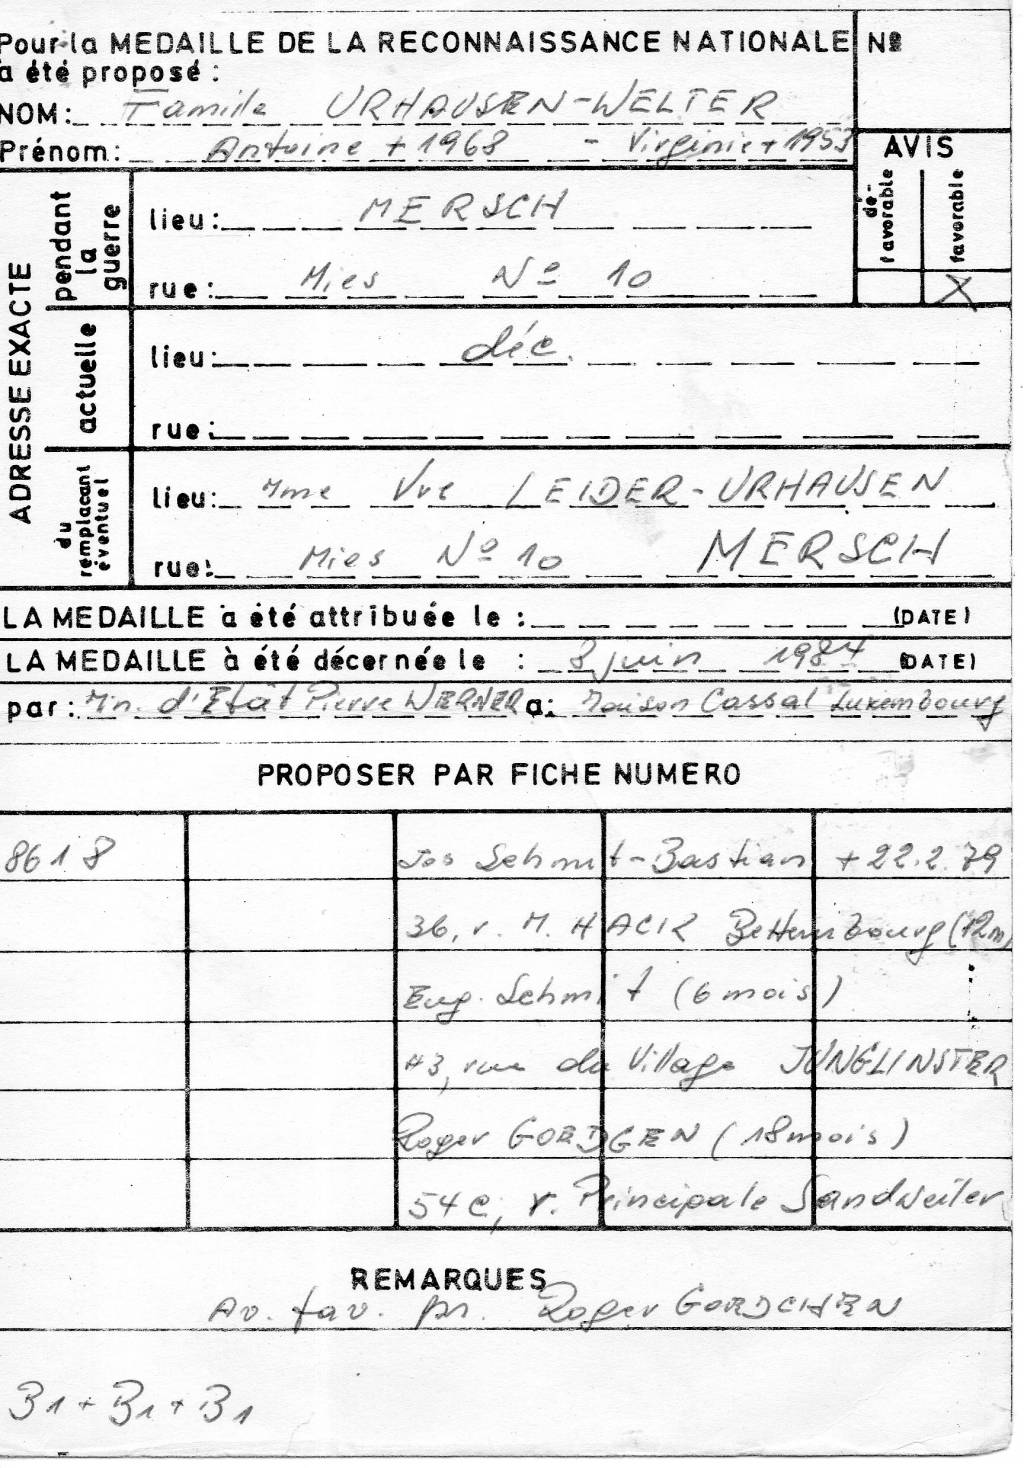 Pour la MEDAILLE DE LA RECONNAISSANCE NATIONALE Nº
a été proposé :
NOM: Famille URHAUSEN-WELTER
Prénom: Antoine + 1968 - Virginie + 1953
AVIS
dé-favorable
favorable
X
ADRESSE EXACTE
pendant la guerre
lieu: MERSCH
rue: Mies Nº 10
actuelle
lieu: déc.
rue:
du remplacant éventuel
lieu: Mme Vve LEIDER-URHAUSEN
rue: Mies Nº 10 MERSCH
LA MEDAILLE a été attribuée le : (DATE)
LA MEDAILLE à été décernée le : 8 juin 1984 (DATE)
par: Min. d'Etat Pierre WERNER a: Maison Cassal Luxembourg
PROPOSER PAR FICHE NUMERO
8618 Jos Schmit-Bastian + 22.2.79
36, r. M. HACK Bettembourg (12m)
Eug. Schmit (6 mois)
43, rue du Village JUNGLINSTER
Roger GOEDGEN (18 mois)
54C, r. Principale Sandweiler
REMARQUES
Av. fav. pr. Roger GOEDCHEN
B1 + B1 + B1